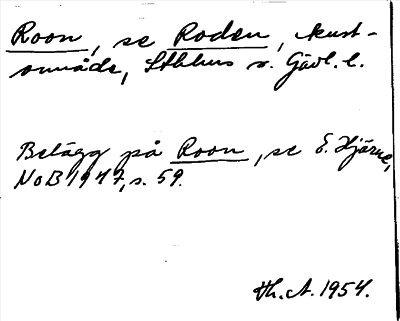 Roon, se Roden, kust-
område, Sthlms o. Gävl. l.
Belägg på Roon, se E. Hjärne,
NoB 1947, s. 59.
Th. A. 1954.